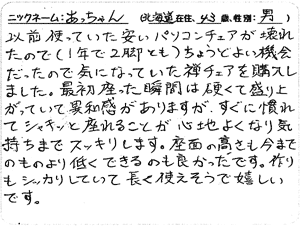 ニックネーム:あっちゃん (北海道在住、43歳、性別:男)
以前使っていた安いパソコンチェアが壊れ
たので(1年で2脚とも)ちょうどよい機会
だったので気になっていた禅チェアを購入し
ました。最初座った瞬間は硬くて盛り上
がっていて異和感がありますが、すぐに慣れ
てシャキッと座れることが心地よくなり気
持ちまでスッキリします。座面の高さも今まで
のものより低くできるのも良かったです。作り
もシッカリしていて長く使えそうで嬉しい
です。